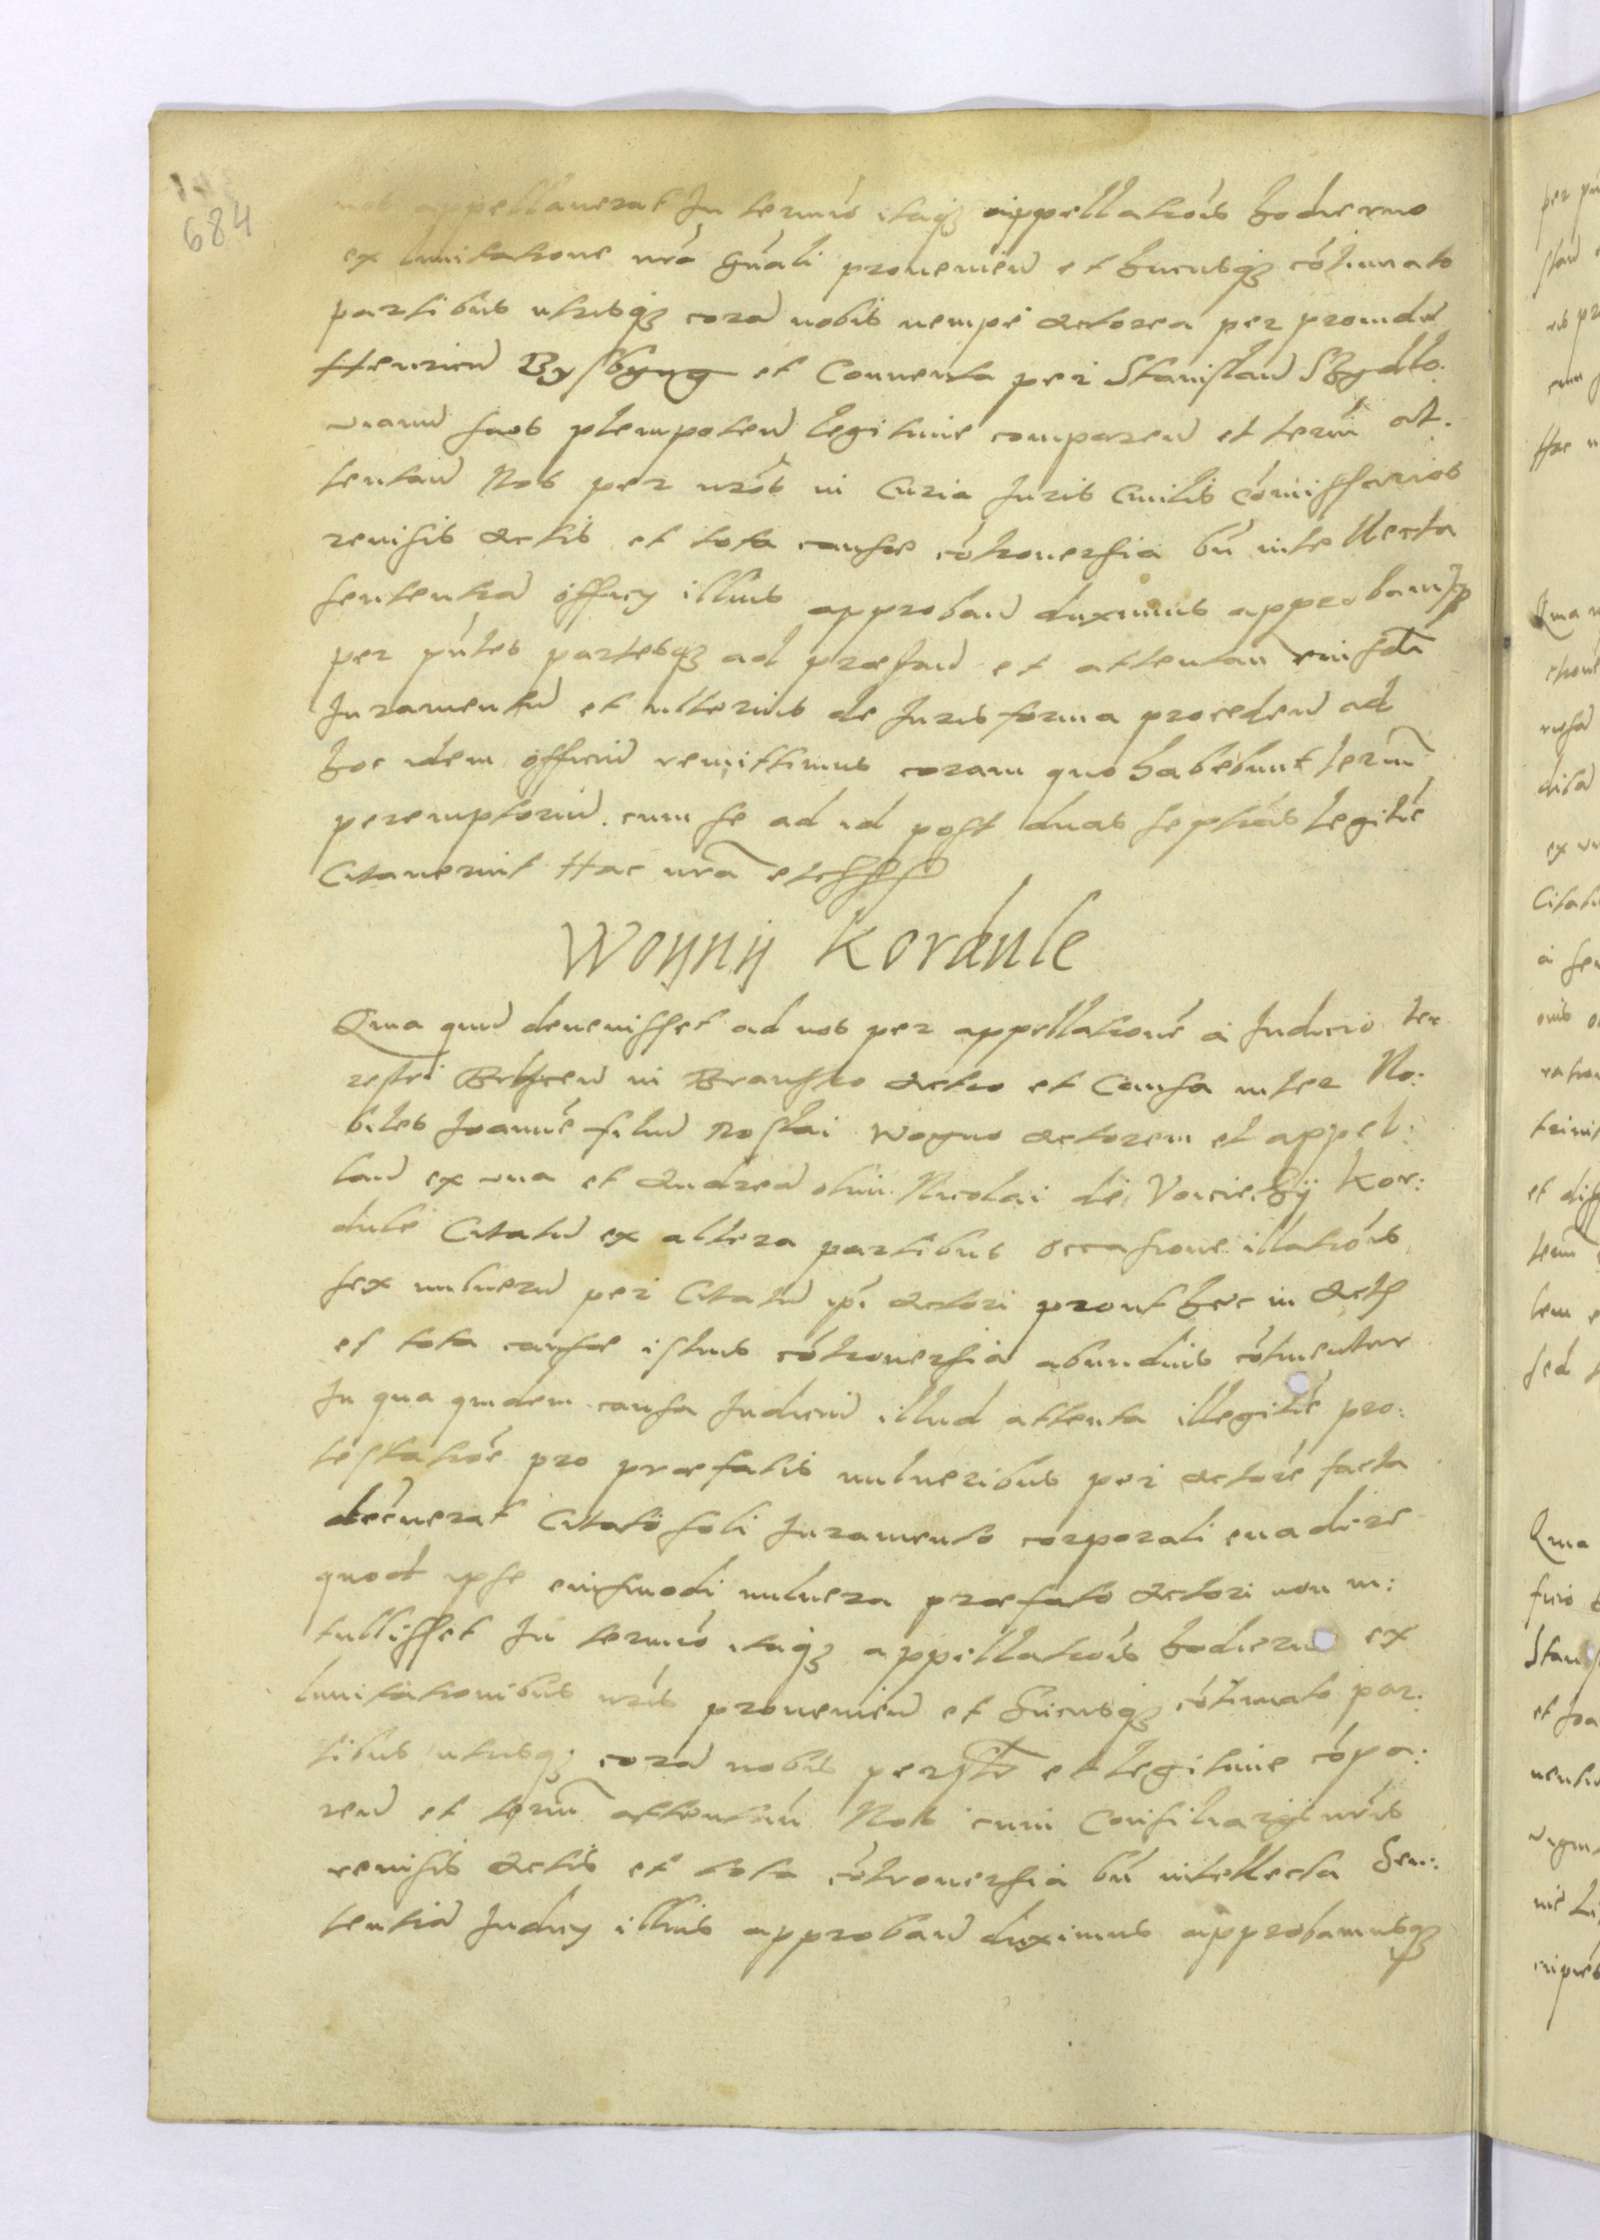 684
nos appellauerat In termio itaqȝ appellatiois hodierno
ex limitatione nra gnali prouenien et hucusqȝ cotinuato
partibus utrisqȝ cora nobis nempe actorea per prouidu
Henricu Bysbyng et Conuenta per Stanislau Szydlo:
suos plenipoten legitime comparen et termi at:
tentan Nos per nros in Curia Iuris Ciuilis comissarios
reuisis actis et tota causae cotrouersia bn intellecta
sententia officy illius approban duximus approbamusqȝ
per pntes partesqȝ ad praestan et attentan eiusdm
Iuramentu et ulterius de Iuris forma proceden ad
hoc idem officiu remittimus coram quo habebunt termi
peremptoriu. cum se ad id post duas septias legitie
Citauerint Hac nra etc
Woÿnÿ Kordule
Quia quu deuenisset ad nos per appellatione a Iudicio ter
restri Bielscen in Bransko actio et Causa inter No:
biles Joanne filiu Woyno actorem et appel:
lan ex una et Andrea olim Nicolai de Kor:
dule Citatu ex altera partibus occasione illatiois
sex uulneru per Citatu ipi actori prout haec in actis
et tota causae istius cotrouersia abundius cotinentur
In qua quidem causa Iudiciu illud attenta illegitie pro:
testatioe pro praefatis uulneribus per actore facta
decreuerat Citato soli Iuramento corporali euadere
quod ipse eiusmodi uulnera praefato actori non in:
tullisset In termio itaqȝ appellatiois hodierno ex
limitationibus nris prouenien et hucusqȝ cotinuato par:
tibus utrisqȝ cora nobis et legitime copa:
ren et termi attentan Nos cum Consiliarys nris
reuisis actis et tota cotrouersia bn intellecta Sen:
tentia Iudicy illius approban duximus approbamusqȝ